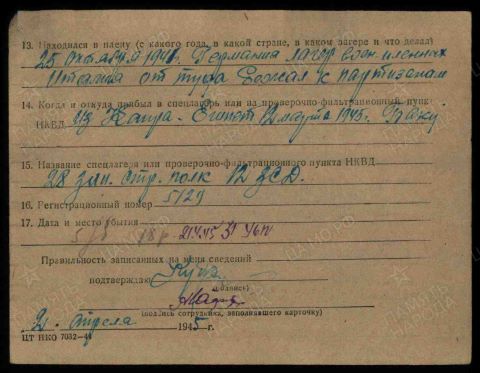 13. Находился в плену (с какого года, в какой стране, в каком лагере и что делал)
25 октября 194 г. Германия лагер воен пленных
Италия от туда бежал к партизанам
14. Когда и откуда прибыл в спецлагерь или на проверочно-фильтрационный пункт
НКВД из Каира - Египет 12 марта 1945. Баку
15. Название спецлагеря или проверочно-фильтрационного пункта НКВД
28 зап. стр. полк 12 ЗСД.
16. Регистрационный номер 5129
17. Дата и место убытия
5/8 18 р 21.4.45
Правильность записанных на меня сведений
подтверждаю
(подпись)
2. апреля 1945 г.
(подпись сотрудника, заполнявшего карточку)
ЦТ НКО 7032-44